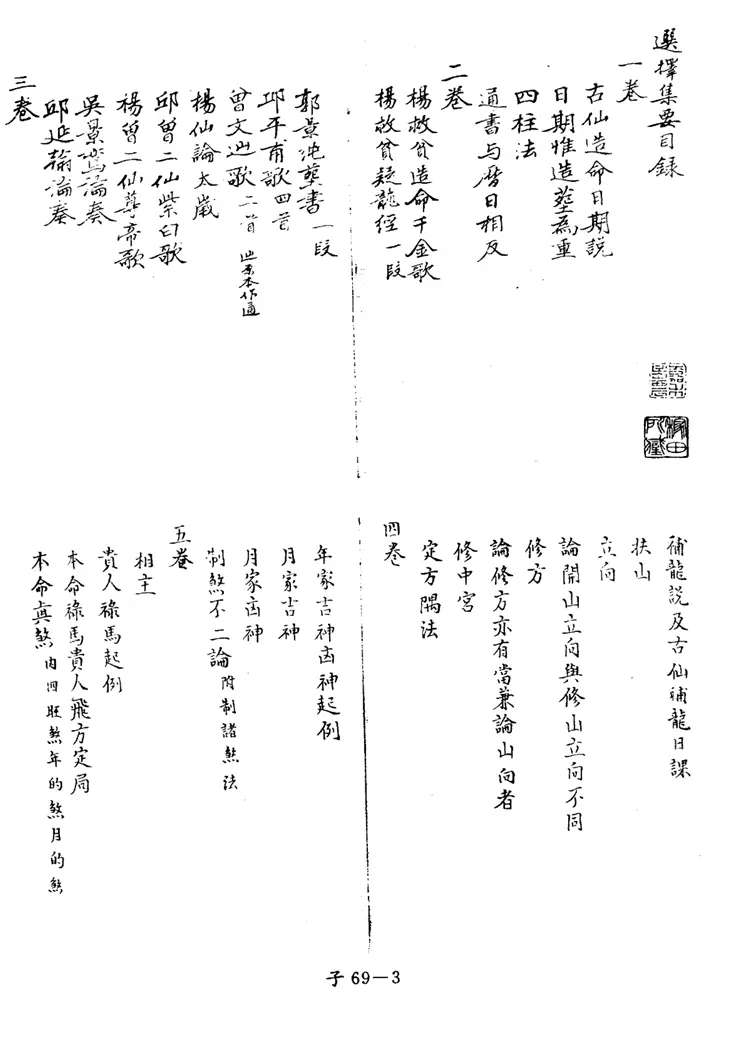 選擇集要目錄
一卷
古仙造命日期説
日期惟造塟爲重
四柱法
通書与曆日相反
二卷
楊救貧造命千金歌
楊救貧疑龍經一段
郭景純塟書一段
邱平甫歌四首
曾文辿歌二首 原本作
楊仙論太歲
邱曾二仙紫白歌
楊曾二仙尊帝歌
吳景鸞論奏
邱延翰論奏
三卷
補龍説及古仙補龍日課
扶山
立向
論開山立向與修山立向不同
修方
論修方亦有當兼論山向者
修中宮
定方隅法
四卷
年家吉神凶神起例
月家吉神
月家凶神
制煞不二論附制諸煞法
五卷
相主
貴人祿馬起例
本命祿馬貴人飛方定局
本命真煞 内四旺煞年的煞月的煞
子 69—3